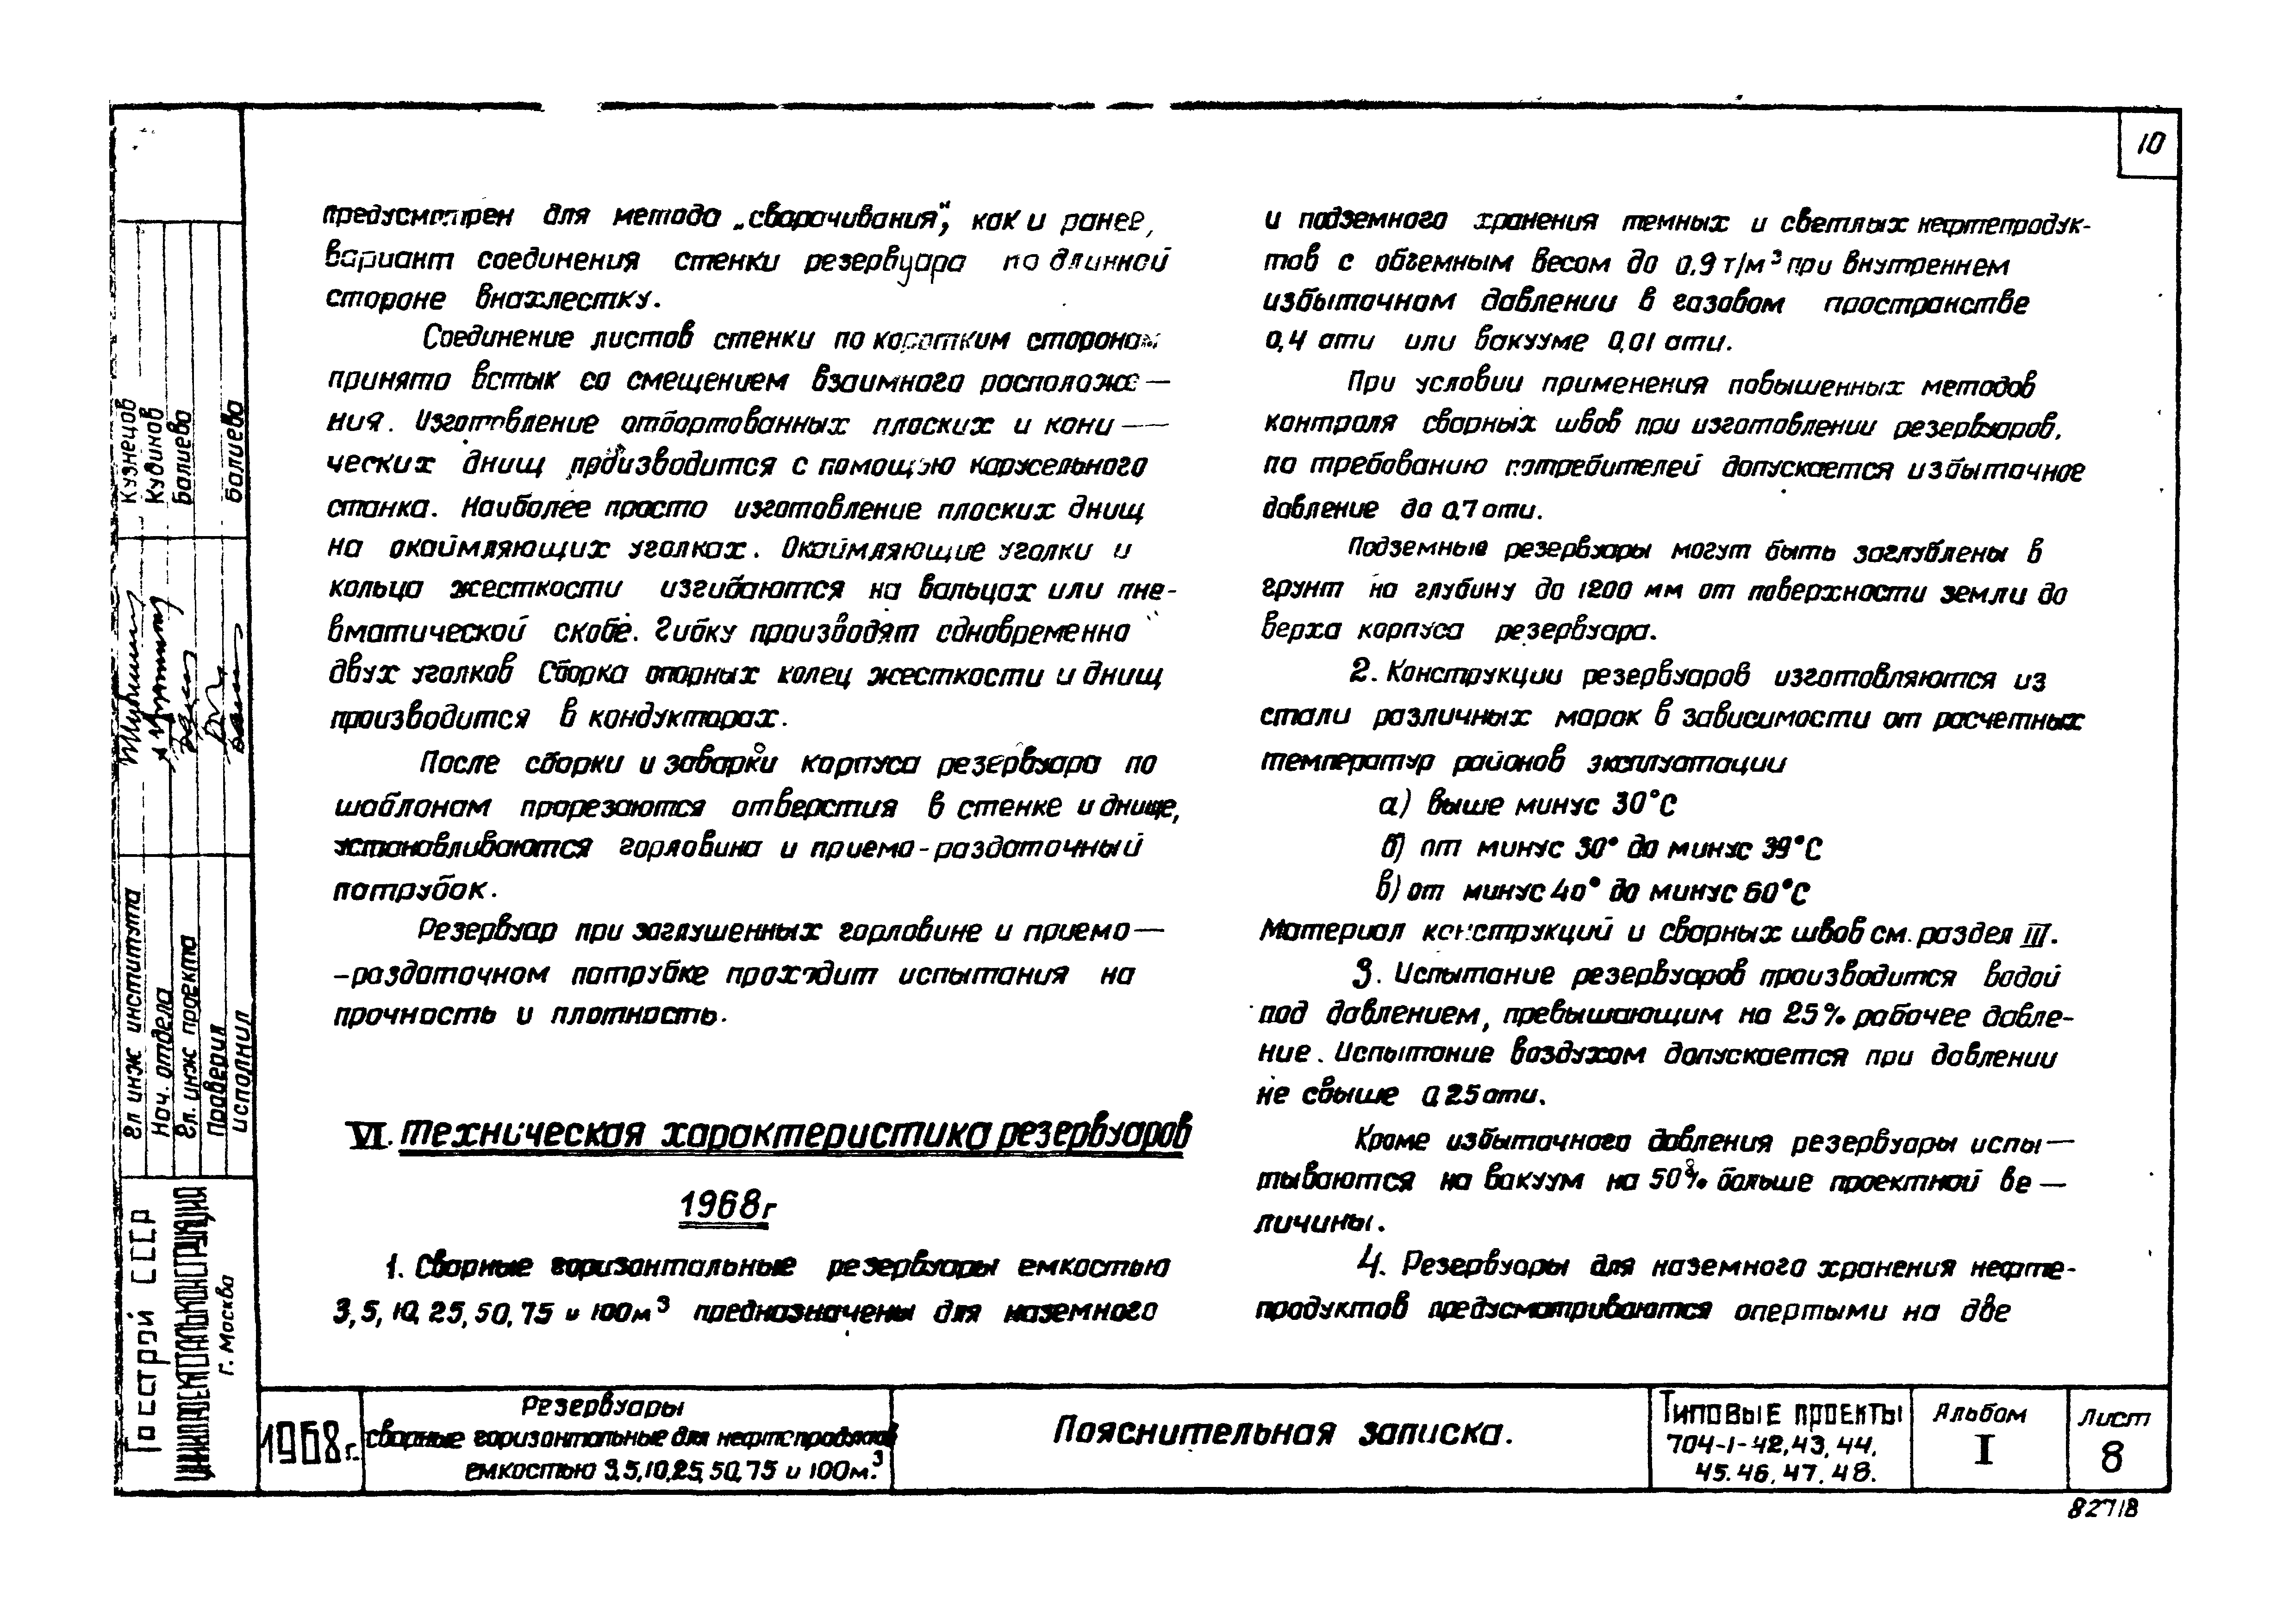 10
предусмотрен для метода „сворачивания“, как и ранее,
вариант соединения стенки резервуара по длинной
стороне внахлестку.
Соединение листов стенки по коротким сторонам
принято встык со смещением взаимного расположе—
ния. Изготовление отбортованных плоских и кони—
ческих днищ производится с помощью карусельного
станка. Наиболее просто изготовление плоских днищ
на окаймляющих уголках. Окаймляющие уголки и
кольца жесткости изгибаются на вальцах или пне-
вматической скобе. Гибку производят одновременно
двух уголков Сборка опорных колец жесткости и днищ
производится в кондукторах.
После сборки и заварки корпуса резервуара по
шаблонам прорезаются отверстия в стенке и днище,
устанавливаются горловина и приемо-раздаточный
патрубок.
Резервуар при заглушенных горловине и приемо—
-раздаточном патрубке проходит испытания на
прочность и плотность.
VI. Техническая характеристика резервуаров
1968г
1. Сварные горизонтальные резервуары емкостью
3, 5, 10, 25, 50, 75 и 100м³ предназначены для наземного
и подземного хранения темных и светлых нефтепродук-
тов с объемным весом до 0.9 т/м³ при внутреннем
избыточном давлении в газовом пространстве
0,4 ати или вакууме 0,01 ати.
При условии применения повышенных методов
контроля сварных швов при изготовлении резервуаров,
по требованию потребителей допускается избыточное
давление до 0.7 ати.
Подземные резервуары могут быть заглублены в
грунт на глубину до 1200 мм от поверхности земли до
верха корпуса резервуара.
2. Конструкции резервуаров изготовляются из
стали различных марок в зависимости от расчетных
температур районов эксплуатации
а) выше минус 30°С
б) от минус 30° до минус 39°С
в) от минус 40° до минус 60°С
Материал конструкций и сварных швов см. раздел III.
3. Испытание резервуаров производится водой
под давлением, превышающим на 25% рабочее давле-
ние. Испытание воздухом допускается при давлении
не свыше 0.25 ати.
Кроме избыточного давления резервуары испы—
тываются на вакуум на 50% больше проектной ве—
личины.
4. Резервуары для наземного хранения нефте-
продуктов предусматриваются опертыми на две
Гл инж института
Нач. отдела
Гл. инж проекта
Проверил
исполнил
Кузнецов
Кудинов
Балиева
Балиева
Госстрой СССР
ЦНИИПРОЕКТСТАЛЬКОНСТРУКЦИЯ
г. Москва
1968г.
Резервуары
сварные горизонтальные для нефтепродуктов
емкостью 3,5,10,25,50,75 и 100м.³
Пояснительная записка.
Типовые проекты
704-1-42,43,44,
45.46,47.48.
Альбом
I
Лист
8
827/8